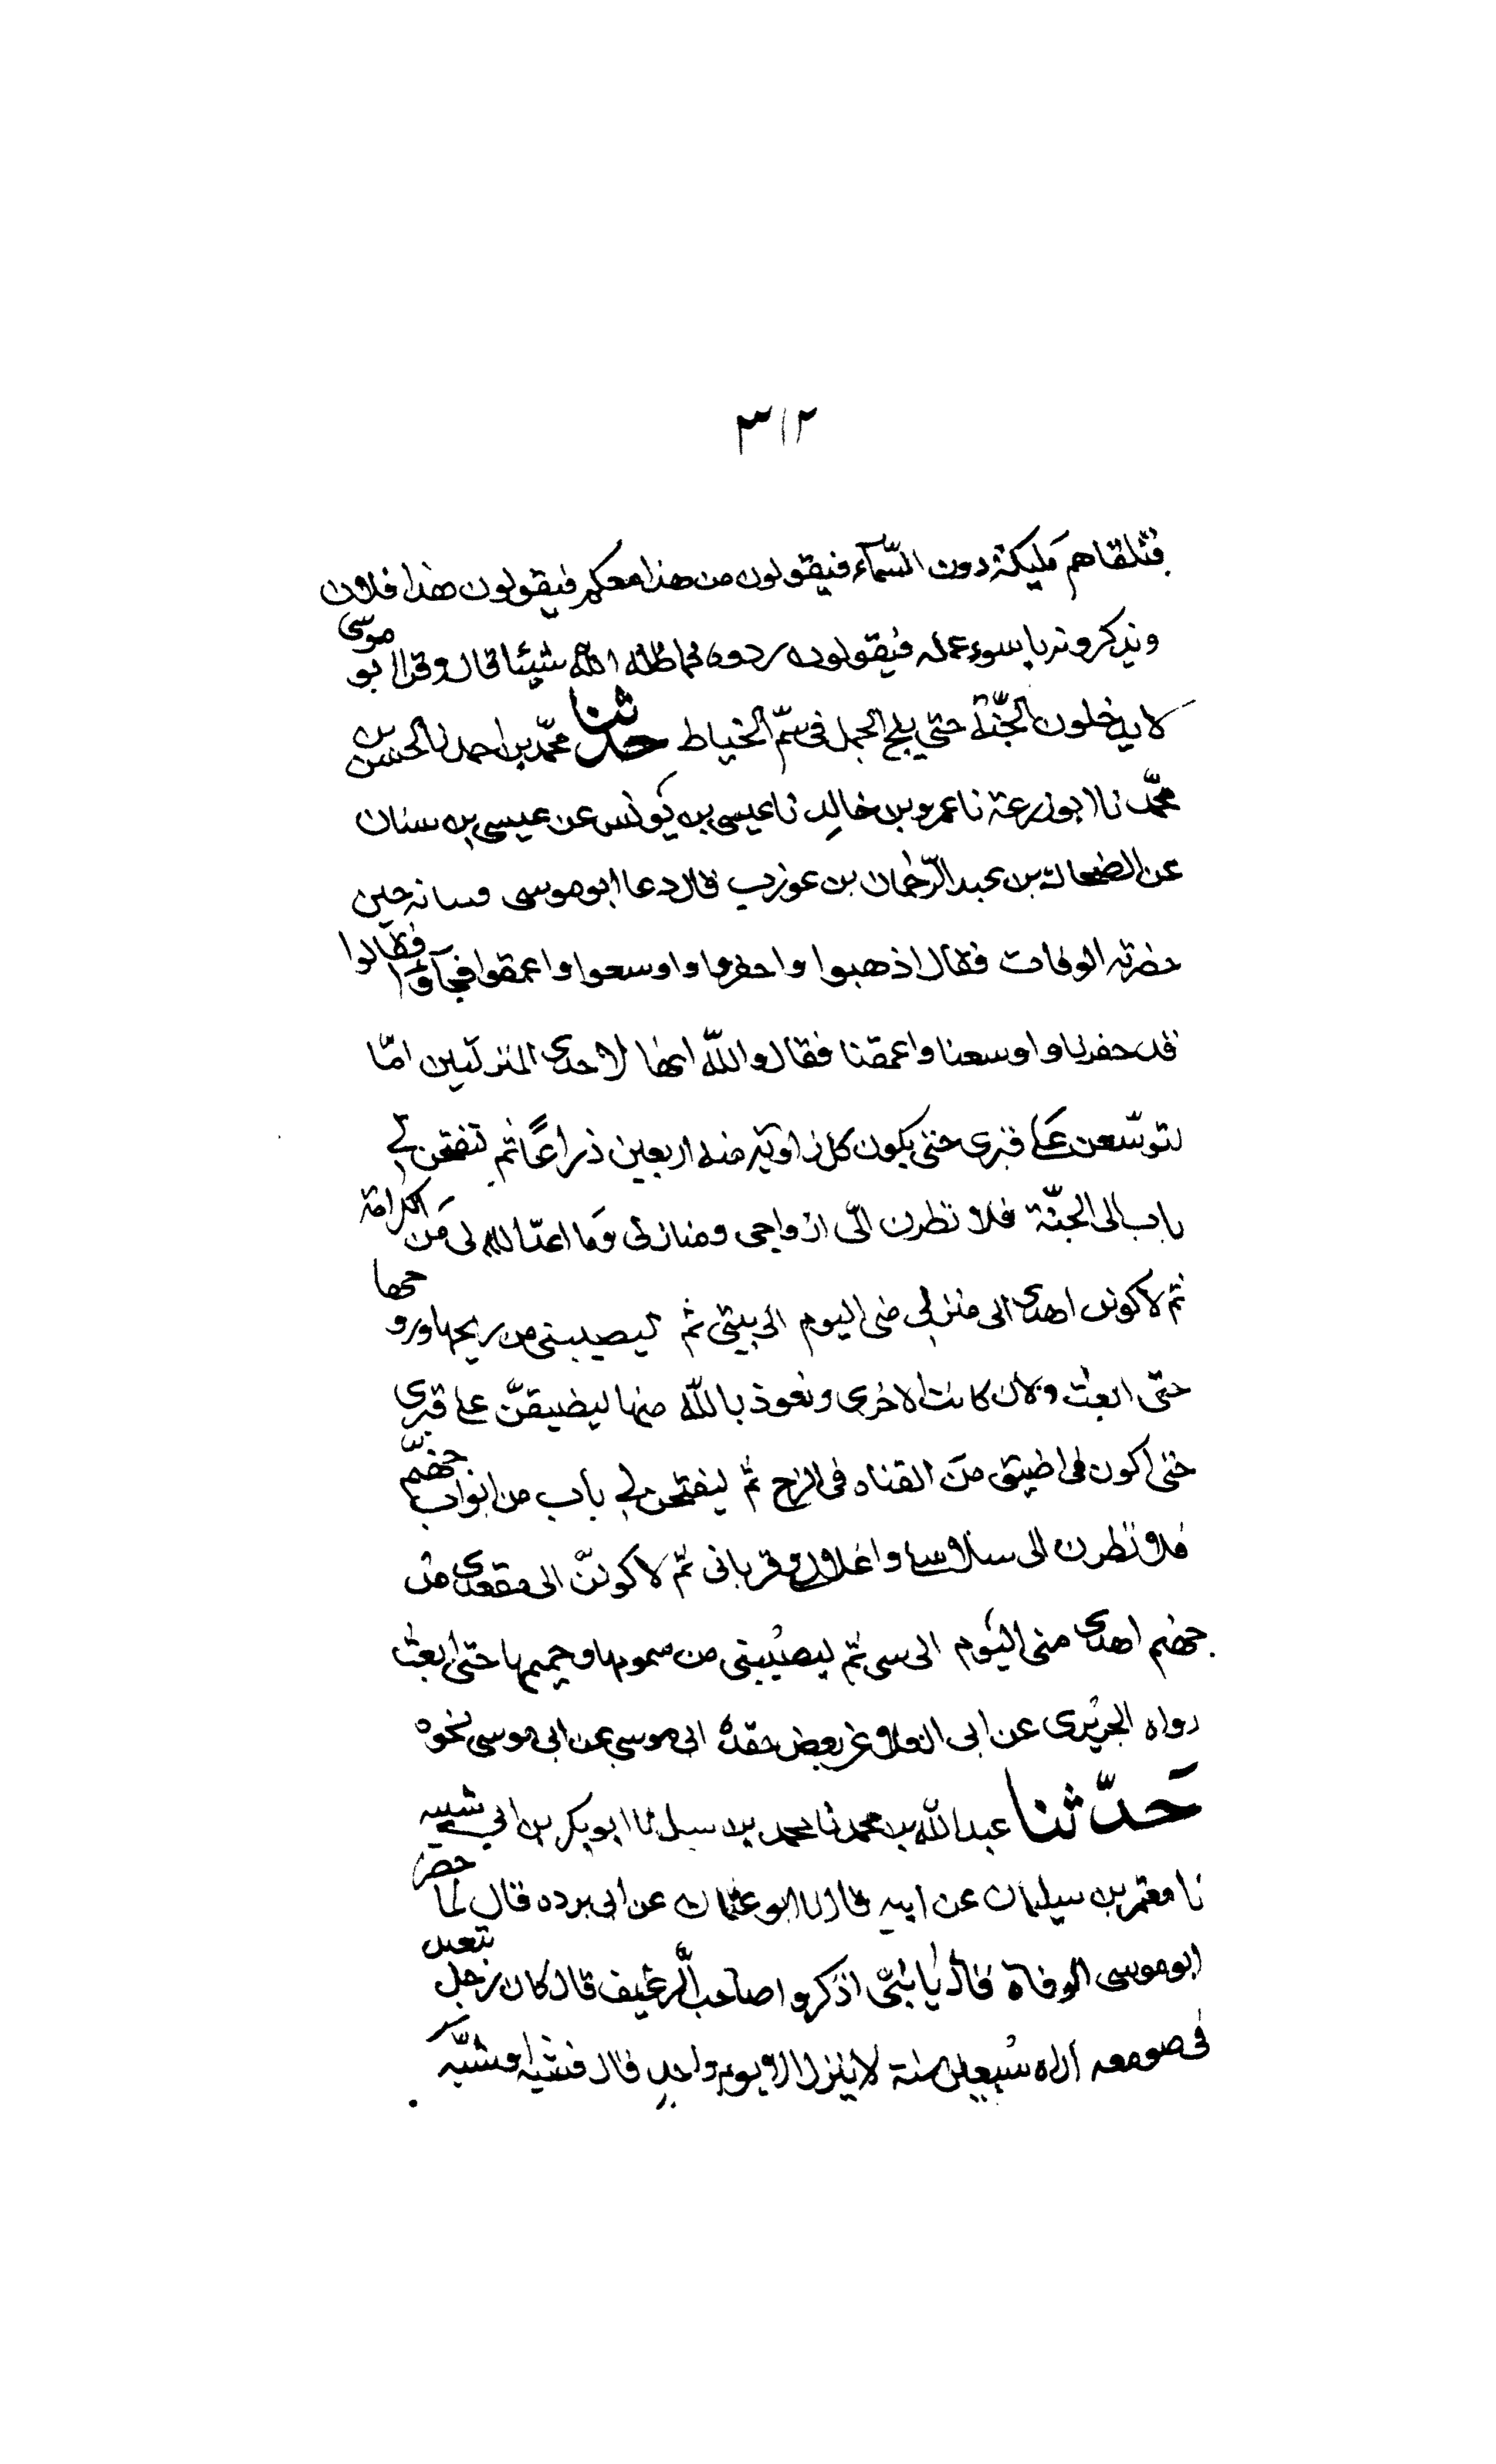 ٣١٢
فتلقاهم مليكة دون السّمآء فيقولون من هذا معكم فيقولون هذا فلان
ويذكرونه باسوء عمله فيقولون ردوه فما ظلمه الله شيئا قال وقرا ابو موسى
لا يدخلون الجنّة حتي يلج الجمل فى سمّ الخياط حدثنا محمّد بن احمد نا الحسن بن
محمّد نا ابو زرعة نا عمرو بن خالد نا عيسى بن يونس عن عيسى بن سنان
عن الضحاك بن عبد الرّحمان بن عوزب قال دعا ابو موسى فتيانه حين
حضرته الوفات فقال اذهبوا واحفروا واوسعوا واعمقوا فجآؤا فقالوا
قد حفرنا واوسعنا واعمقنا فقال والله انها لاحدى المنزلتين امّا
لتوسّعن علے قبرى حتى يكون كل زاوية منه اربعين ذراعًا ثم لتفتحن لے
باب الى الجنّة فلا نظرن الى ازواجى ومنازلى وما اعدّ الله لى من الكرامة
ثم لاكونن اهدى الى منزلى منى اليوم الى بيتى ثم ليصيبنى من ريحها وروحها
حتى ابعث ولان كانت الاخرى ونعوذ بالله منها ليضيقنّ علے قبرى
حتى اكون فى اضيق من القناه فى الزج ثم ليفتحن لے باب من ابواب جهنّم
فلا نظرن الى سلاسلے واغلالى وقرنائى ثم لا كوننّ الى مقعدى من
جهنم اهدى منى اليوم الى بيتى ثم ليصيبنى من سمومها وحميمها حتى ابعث
رواه الجريرى عن ابى العلا عن بعض حفدة ابى موسى عن ابى موسى نحوه
حَدّثنا عبد الله بن محمد نا محمد بن شبل نا ابو بكر بن ابى شيبه
نا معتمر بن سيلمان عن ابيه قال نا ابو عثمان عن ابى برده قال لما حضر
ابو موسى الوفاة قال يا بَنىّ اذكروا صاحب الرغيف قال كان رجل يتعبد
فى صومعه اراه سبعين سنة لا ينزل الا يوم واحد قال فشبّه او شبّه